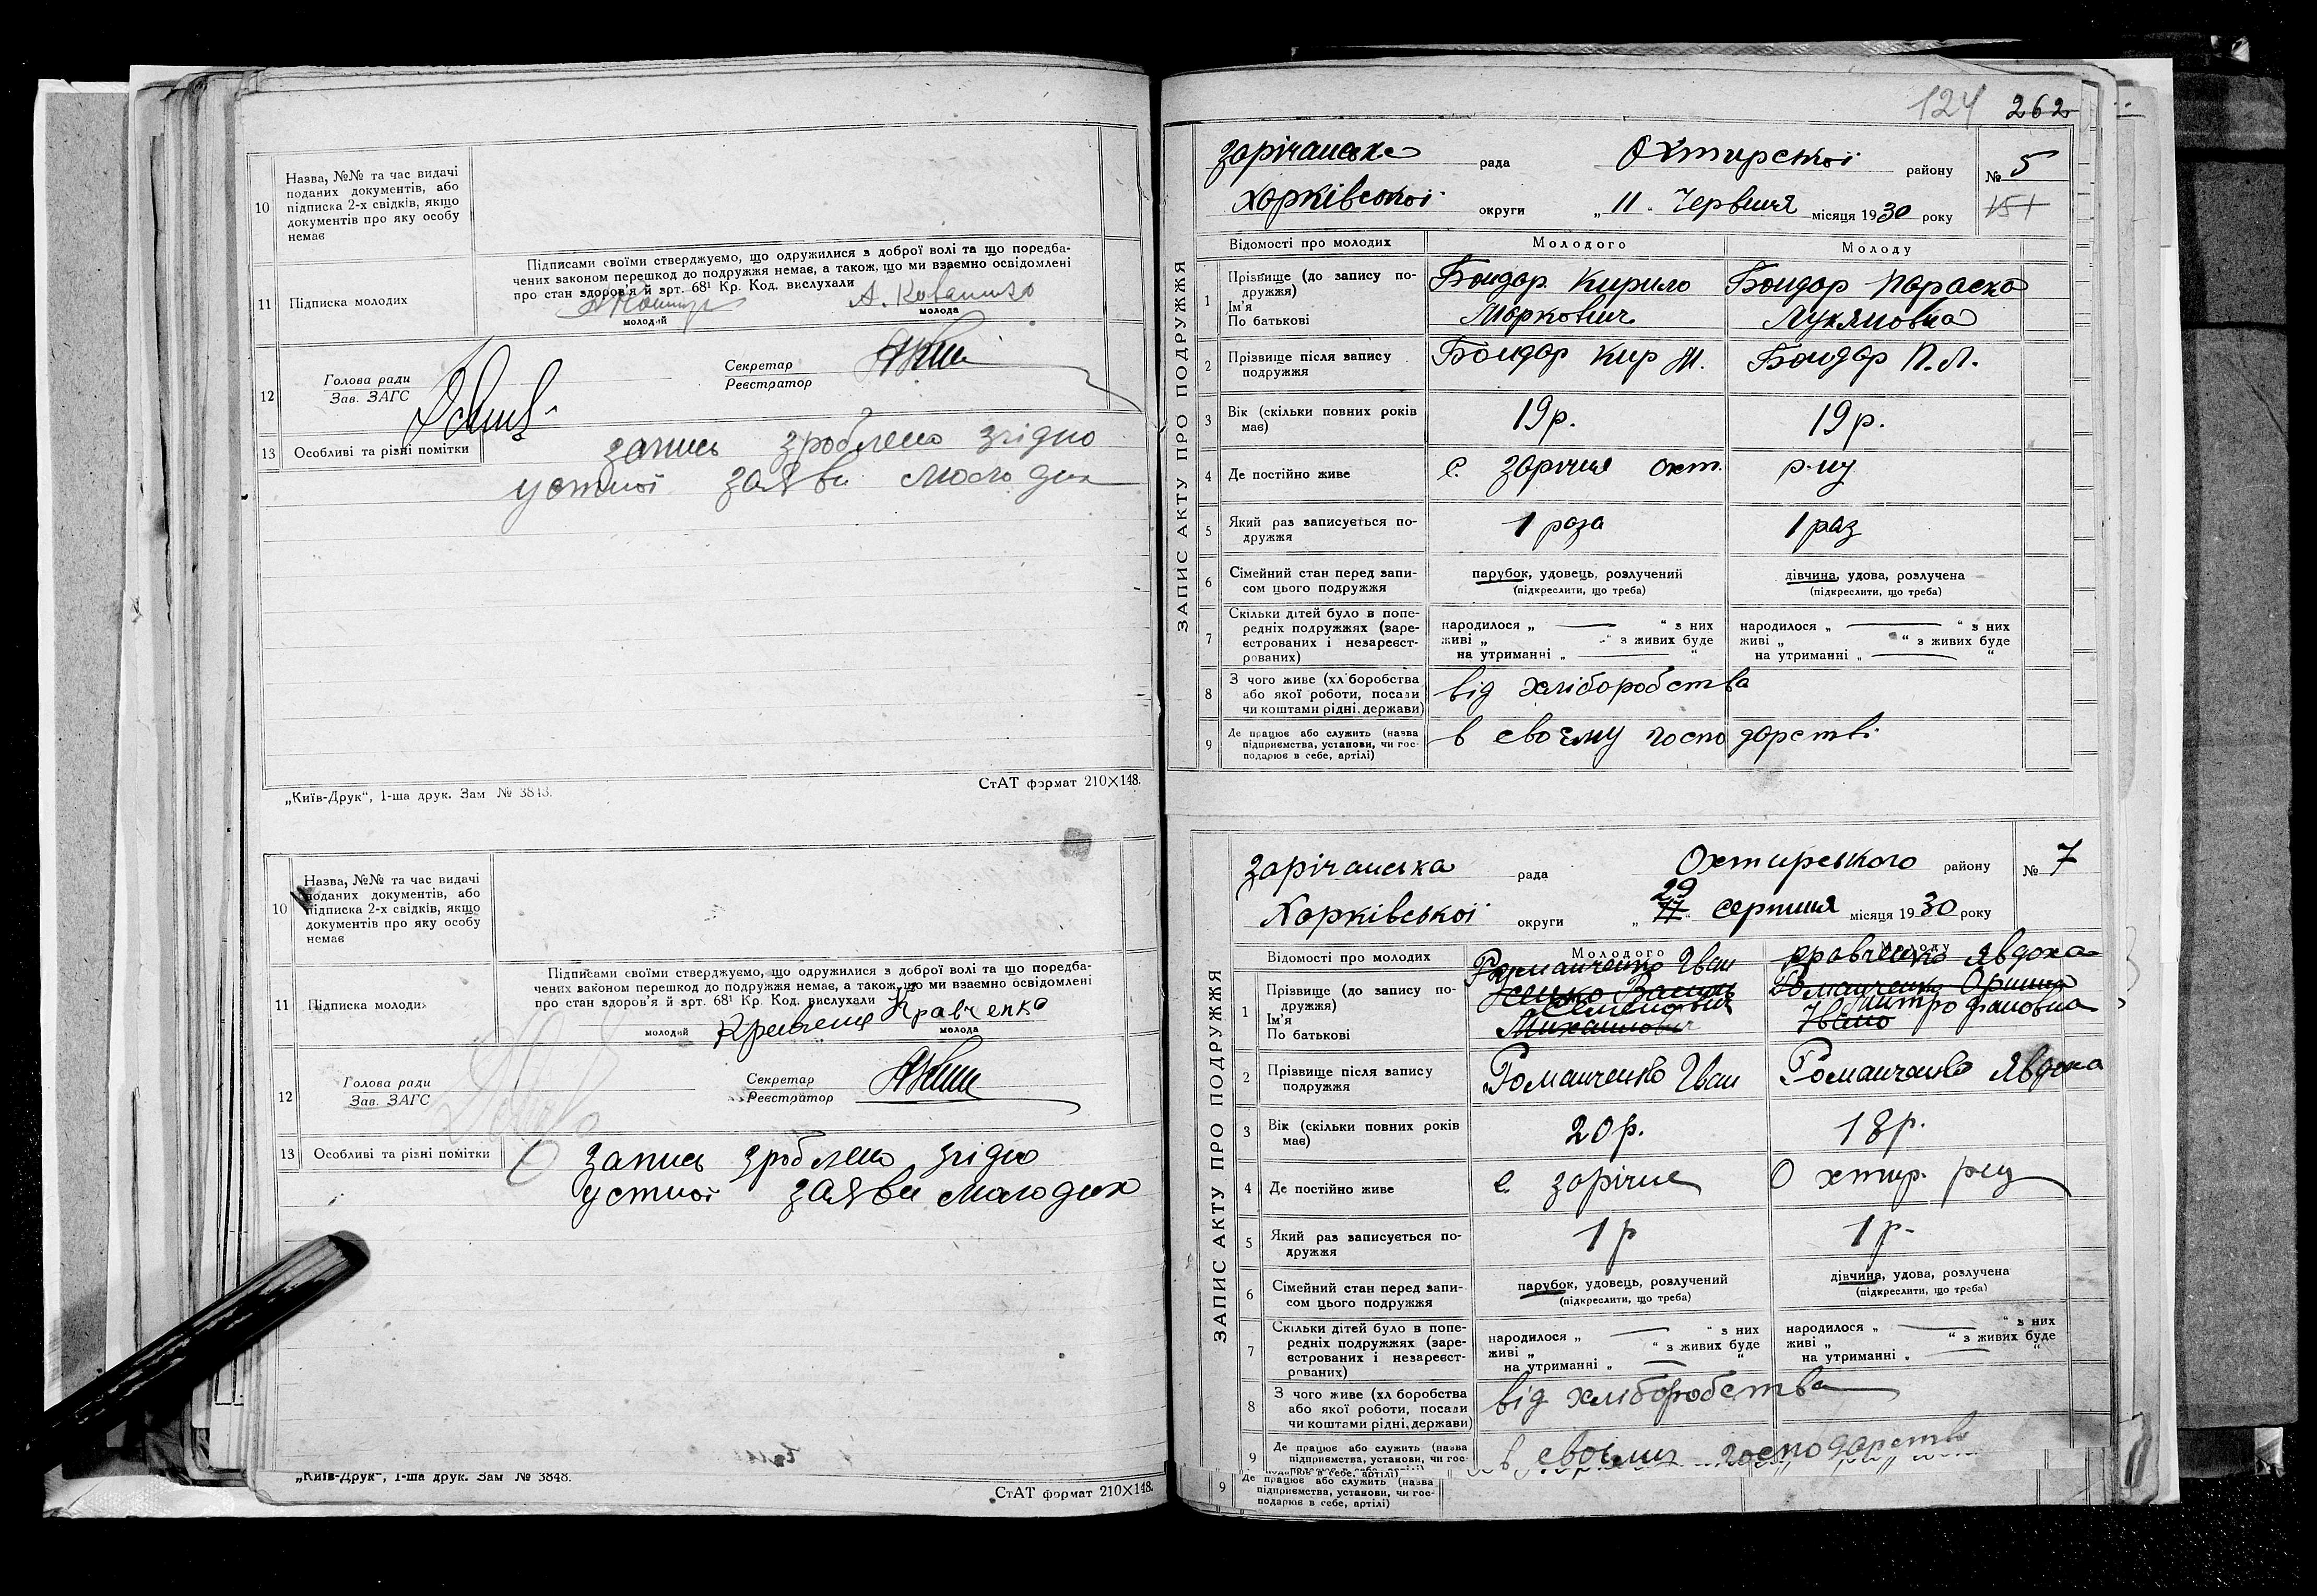 10
Назва, №№ та час видачі
поданих документів, або
підписка 2-х свідків, якщо
документів про яку особу
немає
11
Підписка молодих
Підписами своїми стверджуємо, що одружилися з доброї волі та що поредба-
чених законом перешкод до подружжя немає, а також, що ми взаємно освідомлені
про стан здоров'я й арт. 68¹ Кр. Код. вислухали
молодий
молода
12
Голова ради
Зав. ЗАГС
Секретар
Реєстратор
13
Особливі та різні помітки
запись зроблено згідно
устної заяви молодих
„Київ-Друк“, 1-ша друк. Зам № 3848.
СтАТ формат 210×148.
10
Назва, №№ та час видачі
поданих документів, або
підписка 2-х свідків, якщо
документів про яку особу
немає
11
Підписка молодих
Підписами своїми стверджуємо, що одружилися з доброї волі та що поредба-
чених законом перешкод до подружжя немає, а також, що ми взаємно освідомлені
про стан здоров'я й арт. 68¹ Кр. Код. вислухали
Кравченко
молодий
молода
12
Голова ради
Зав. ЗАГС
Секретар
Реєстратор
13
Особливі та різні помітки
запись зроблено згідно
устної заяви молодих
„Київ-Друк“, 1-ша друк. Зам № 3848.
СтАТ формат 210×148.
124 262
ЗАПИС АКТУ ПРО ПОДРУЖЖЯ
Зарічанська рада Охтирської району № 5
Харківської округи „ 11 “ Червня місяця 1930 року 151
Відомості про молодих
Молодого
Молоду
1
Прізвище (до запису по-
дружжя)
Ім'я
По батькові
Бондар Кирило
Маркович
Бондар Параска
Лукяновна
2
Прізвище після запису
подружжя
Бондар Кир М.
Бондар П.Л.
3
Вік (скільки повних років
має)
19р.
19р.
4
Де постійно живе
с. Заріччя Охт. р-ну
5
Який раз записується по-
дружжя
1 раза
1 раз
6
Сімейний стан перед запи-
сом цього подружжя
парубок, удовець, розлучений
(підкреслити, що треба)
дівчина, удова, розлучена
(підкреслити, що треба)
7
Скільки дітей було в попе-
редніх подружжях (заре-
єстрованих і незареєст-
рованих)
народилося „ “ з них
живі „ “ з живих буде
на утриманні „ “
народилося „ “ з них
живі „ “ з живих буде
на утриманні „ “
8
З чого живе (хліборобства
або якої роботи, посади
чи коштами рідні, держави)
від хліборобства
9
Де працює або служить (назва
підприємства, установи, чи гос-
подарює в себе, артілі)
в своєму господарстві
ЗАПИС АКТУ ПРО ПОДРУЖЖЯ
Зарічанська рада Охтирського району № 7
29
Харківської округи „ 11 “ серпня місяця 1930 року
Відомості про молодих
Молодого
Молоду
1
Прізвище (до запису по-
дружжя)
Ім'я
По батькові
Романченко Іван
Семенович
Михайлович
Кравченко Явдоха
Романченко Орина
Митрофановна
Івано
2
Прізвище після запису
подружжя
Романченко Іван
Романченко Явдоха
3
Вік (скільки повних років
має)
20р.
18р.
4
Де постійно живе
с. Заріччя Охтир. р-ну
5
Який раз записується по-
дружжя
1р
1р-
6
Сімейний стан перед запи-
сом цього подружжя
парубок, удовець, розлучений
(підкреслити, що треба)
дівчина, удова, розлучена
(підкреслити, що треба)
7
Скільки дітей було в попе-
редніх подружжях (заре-
єстрованих і незареєст-
рованих)
народилося „ “ з них
живі „ “ з живих буде
на утриманні „ “
народилося „ “ з них
живі „ “ з живих буде
на утриманні „ “
8
З чого живе (хліборобства
або якої роботи, посади
чи коштами рідні, держави)
від хліборобства
9
Де працює або служить (назва
підприємства, установи, чи гос-
в своєму господарстві
9
Де працює або служить (назва
підприємства, установи, чи гос-
подарює в себе, артілі)